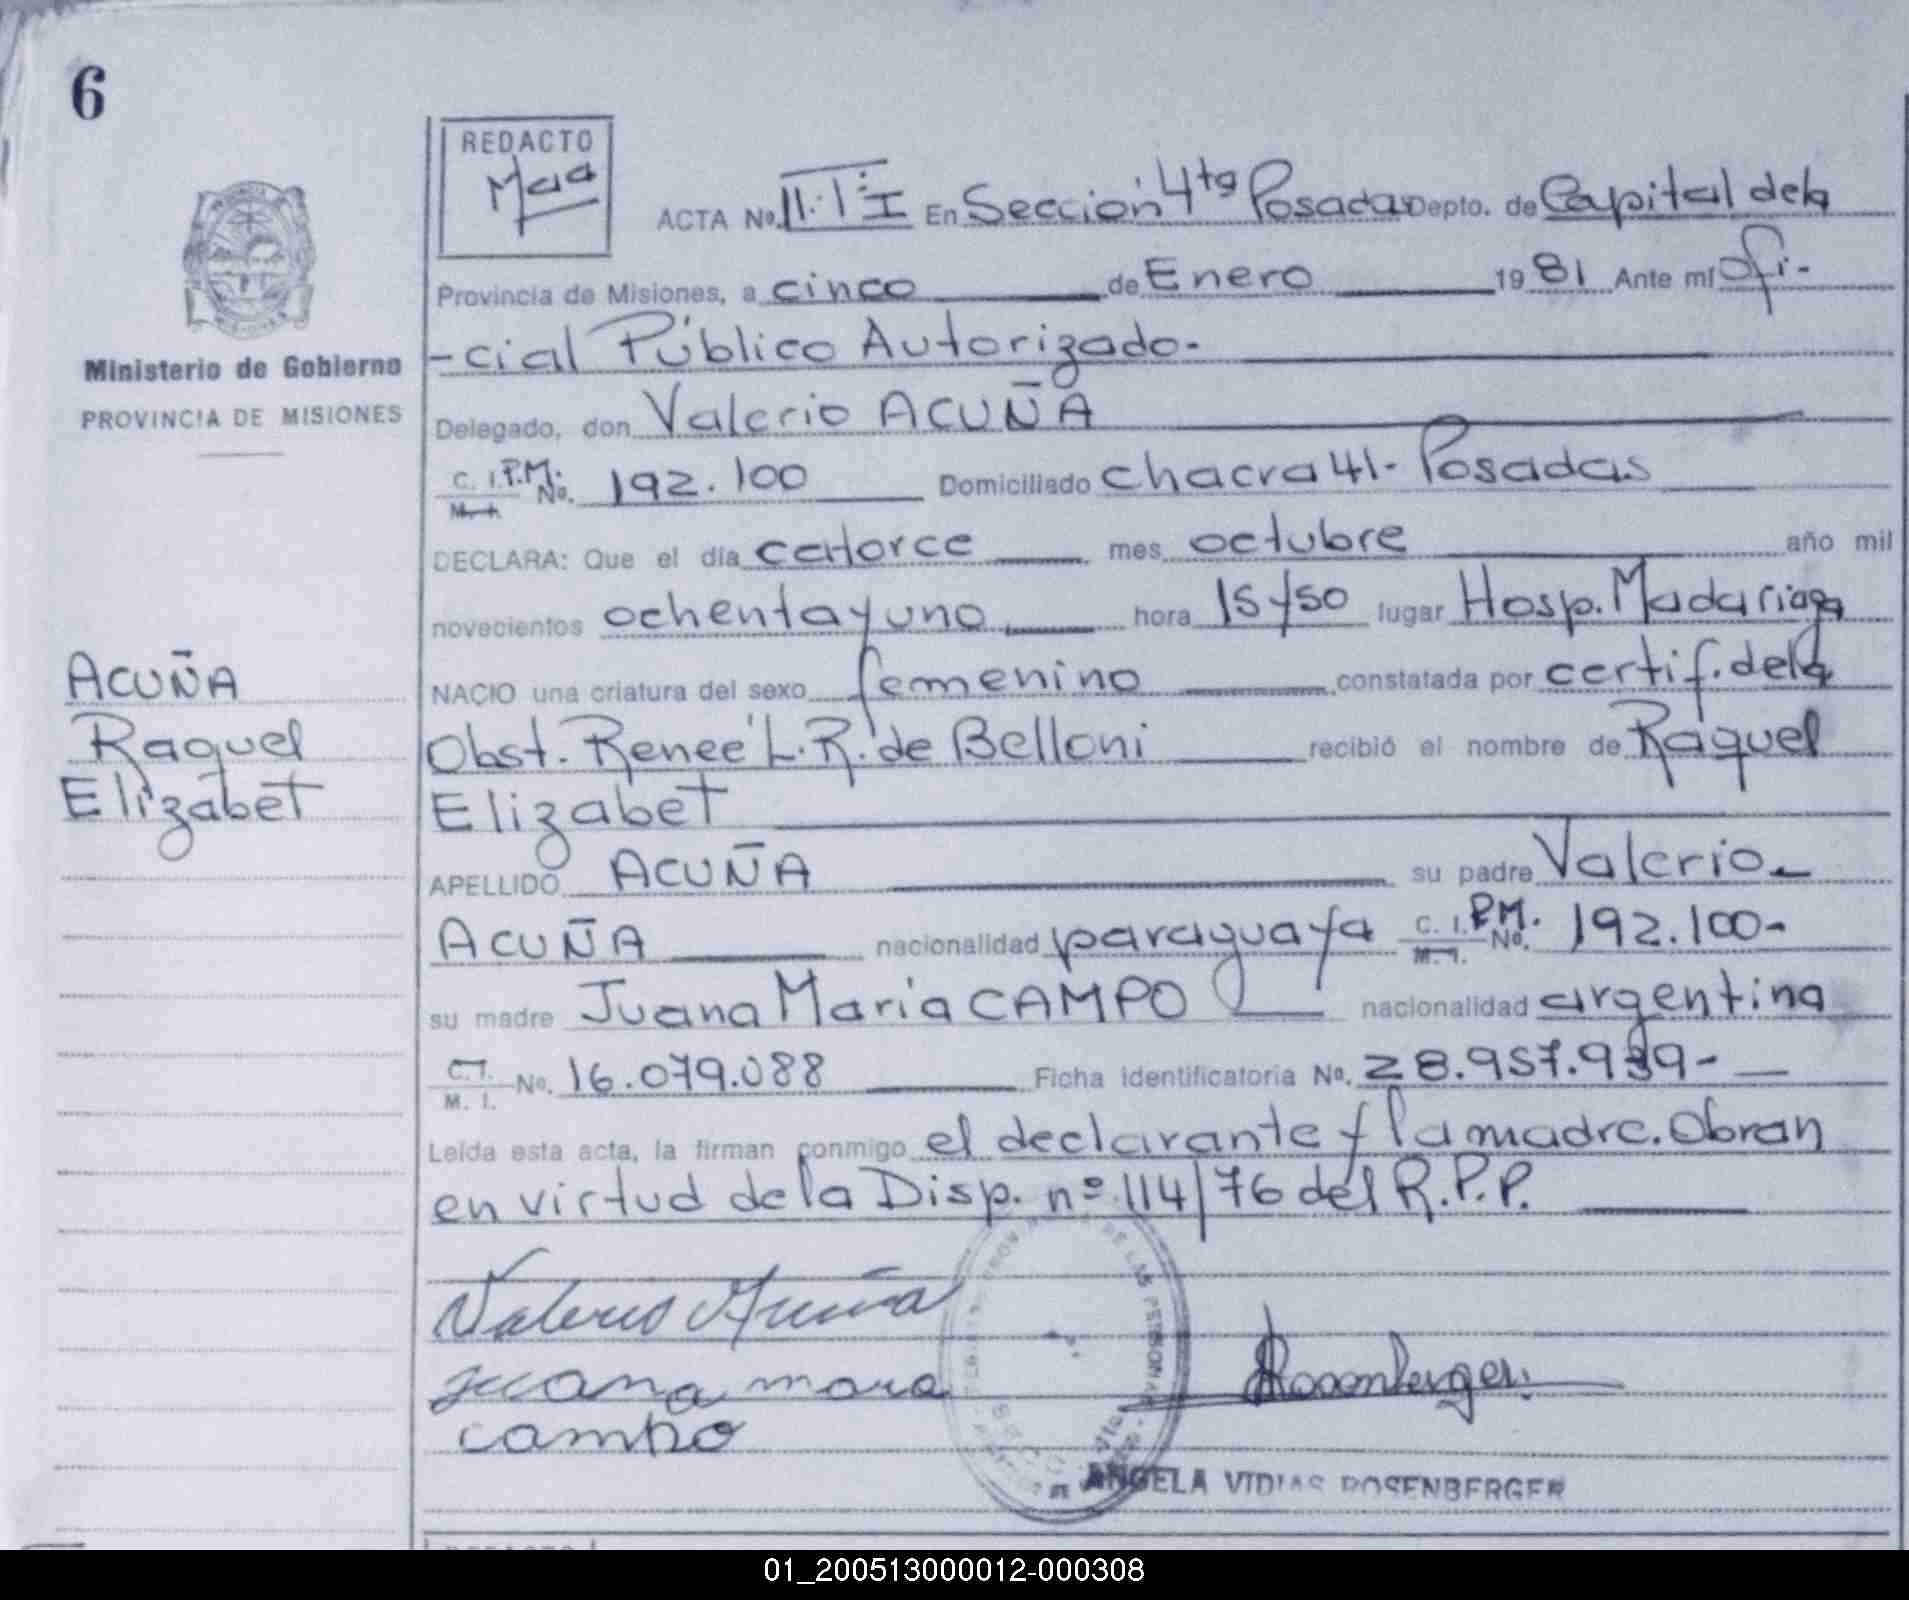 6
REDACTO
Maa
ACTA No. II·I·I En Sección 4ta Posadas Depto. de Capital de la
Provincia de Misiones, a cinco de Enero 1981 Ante mí Ofi-
-cial Público Autorizado-
Ministerio de Gobierno
PROVINCIA DE MISIONES
Delegado, don Valerio ACUÑA
C. I. P.M. M. I. No. 192.100 Domiciliado chacra 41- Posadas
DECLARA: Que el día catorce mes octubre año mil
novecientos ochenta y uno hora 15 y 50 lugar Hosp. Madariaga
NACIO una criatura del sexo femenino constatada por certif. de la
Obst. Renee L. R. de Belloni recibió el nombre de Raquel
Elizabet
ACUÑA
Raquel
Elizabet
APELLIDO ACUÑA su padre Valerio
ACUÑA nacionalidad paraguaya C. I. P.M. M. I. No. 192.100-
su madre Juana Maria CAMPO nacionalidad argentina
C. I. M. I. No. 16.079.088 Ficha identificatoria No. 28.957.939-
Leída esta acta, la firman conmigo el declarante y la madre. Obran
en virtud de la Disp. nº 114/76 del R.P.P.
Valerio Acuña
juana mara
campo
Rosenberger
DE LAS PERSONAS
ANGELA VIDIAS ROSENBERGER
REDACTO
01_200513000012-000308